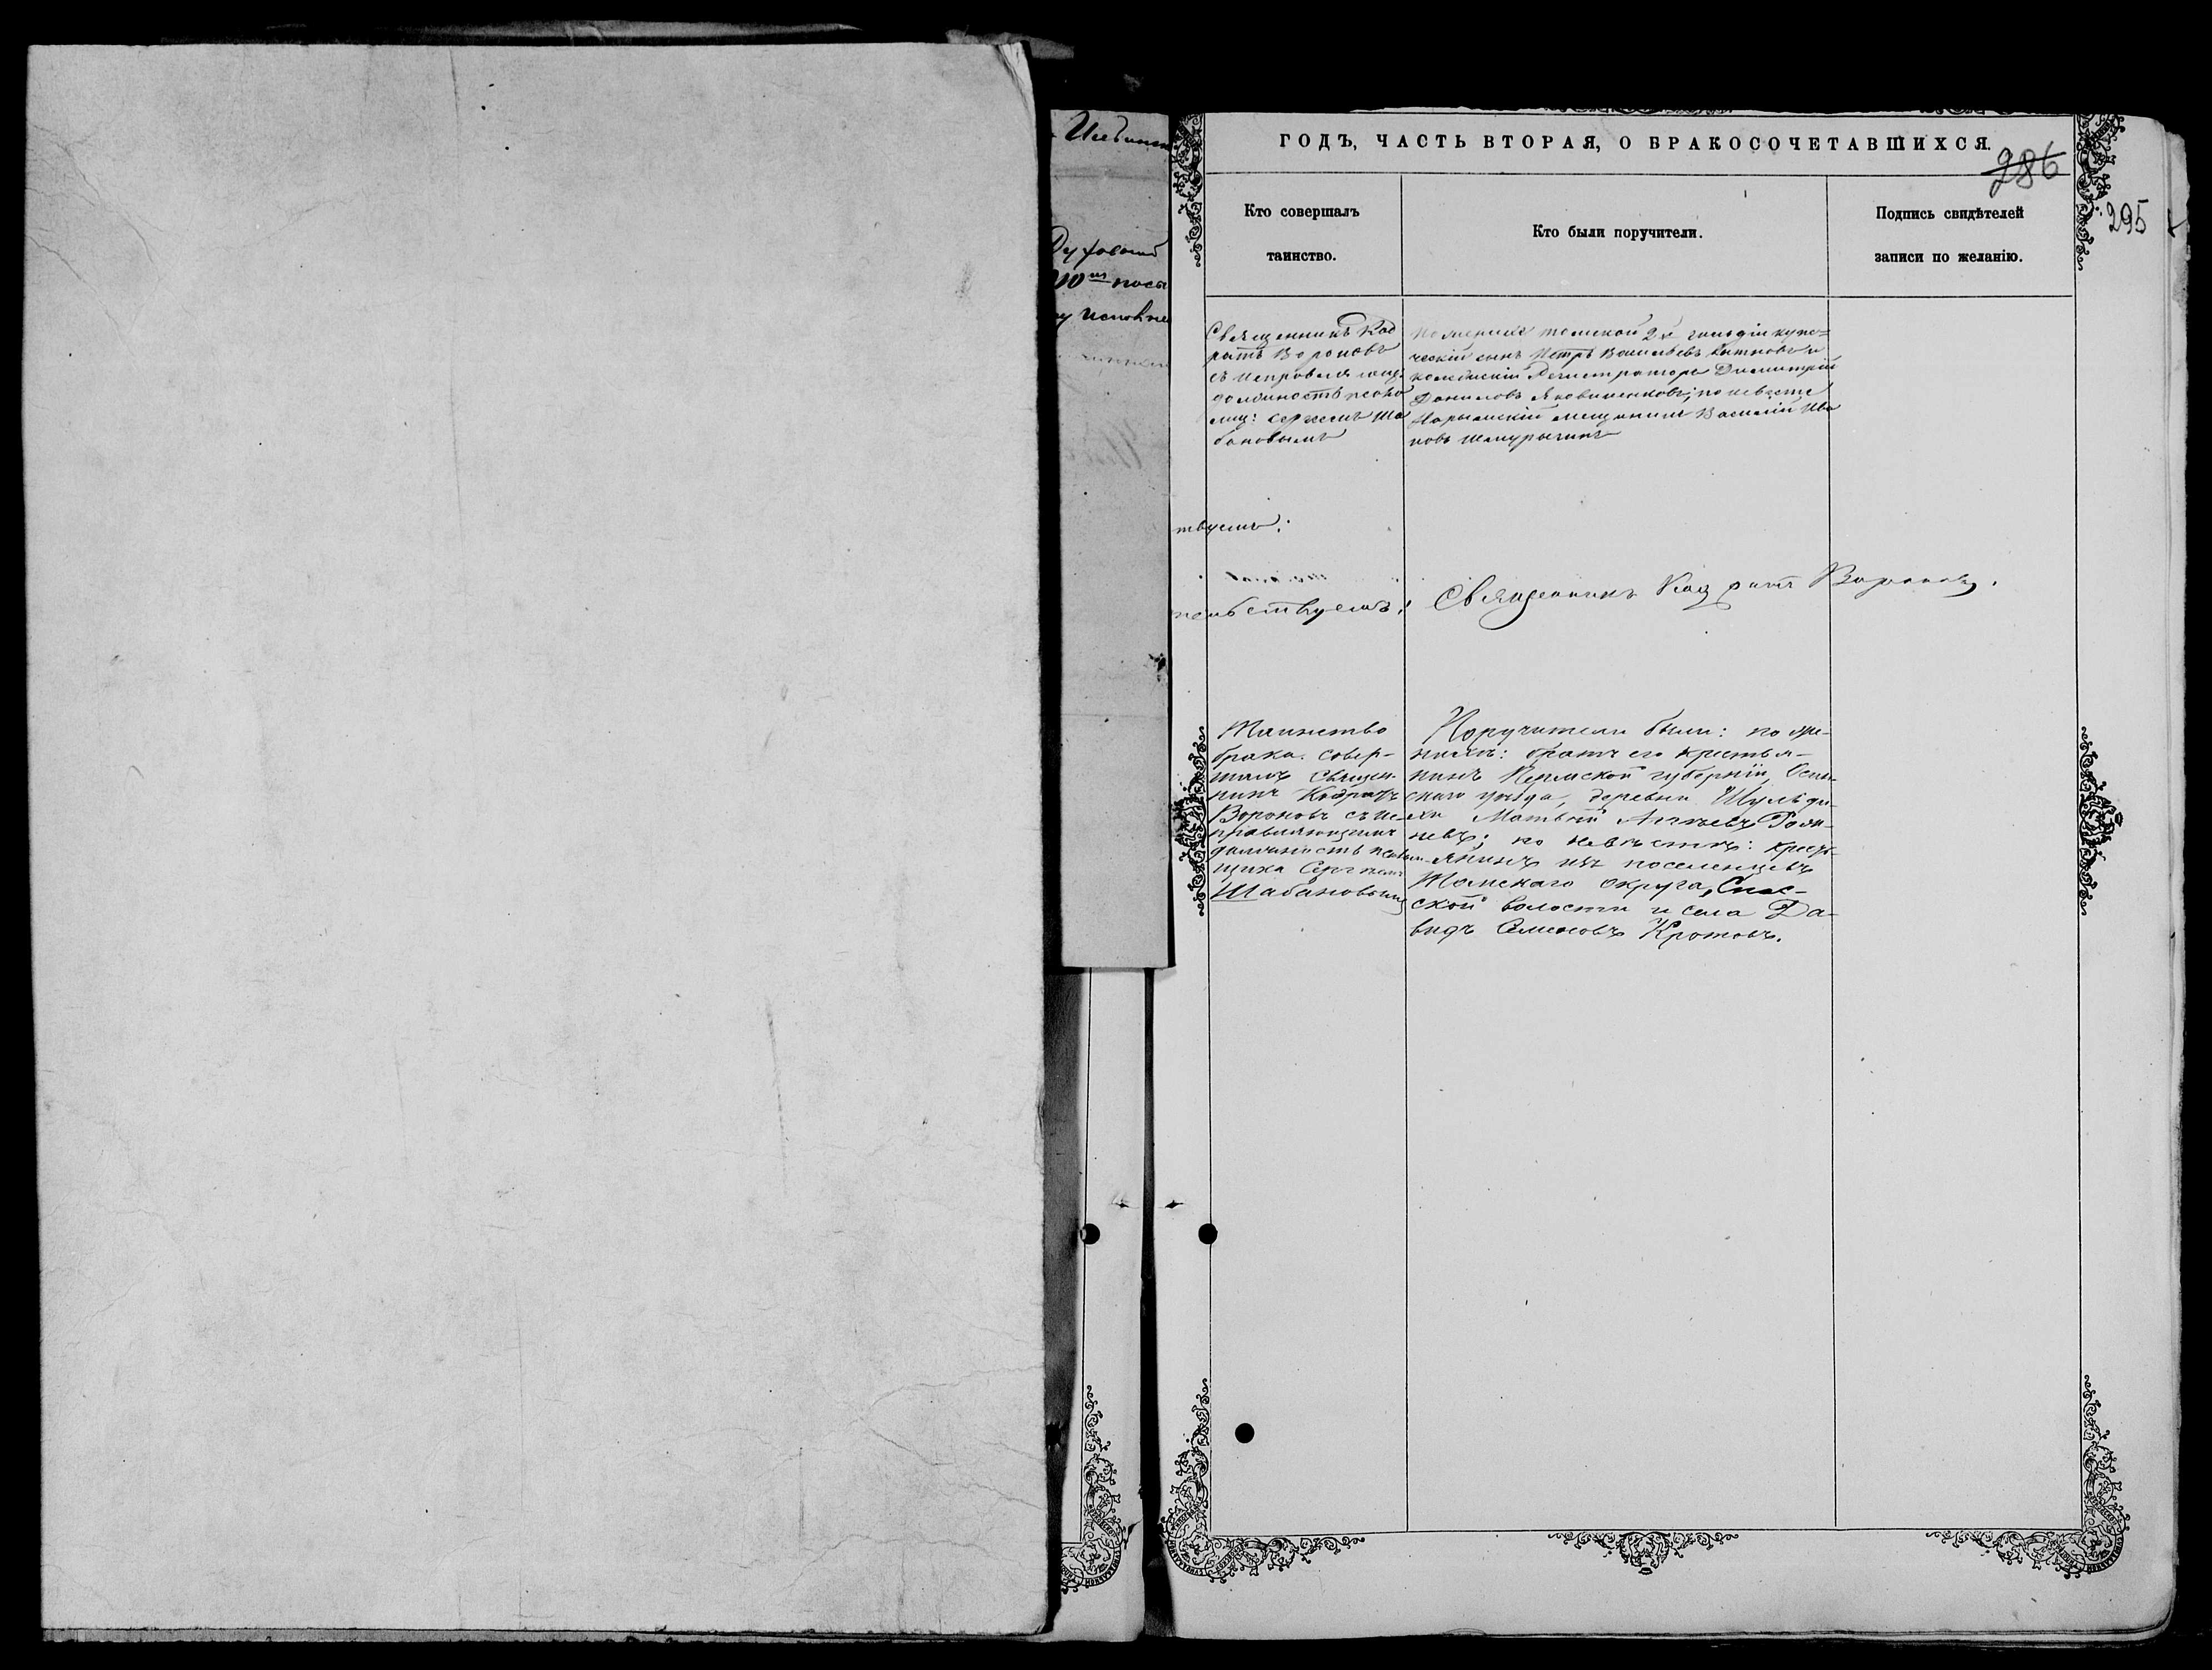 ГОДЪ, ЧАСТЬ ВТОРАЯ, О БРАКОСОЧЕТАВШИХСЯ.
286
295
Кто совершалъ
таинство.
Кто были поручители.
Подпись свидѣтелей
записи по желанію.
Священникъ Код
ратъ Вороновъ
съ исправляющ:
должность псало
мщ: Сергеемъ Ша
бановымъ
по женихѣ томской 2й гильдіи купе=
ческій сынъ Петръ Васильевъ и
колежскій Регистраторъ Димитрій
Даниловъ Яковиненковъ; по невѣсте
Нарымскій мещанинъ Василій Ива
новъ
твуемъ:
тельствуемъ: Священникъ Кодратъ Вороновъ.
Таинство
брака совер-
шалъ Священ-
никъ Кодратъ
Вороновъ съ ис-
правляющимъ
должность псалом-
щика Сергѣемъ
Шабановымъ
Поручители были: по же-
нихѣ: братъ его крестья-
нинъ Пермской губерніи, Осин-
скаго уѣзда, деревни Шульди-
хи Матвѣй
невъ; по невѣстѣ: кресть-
янинъ изъ поселенцевъ
Томскаго округа, Спас-
ской волости и села Да-
видъ Семеновъ Кротовъ.
Духовной
10го